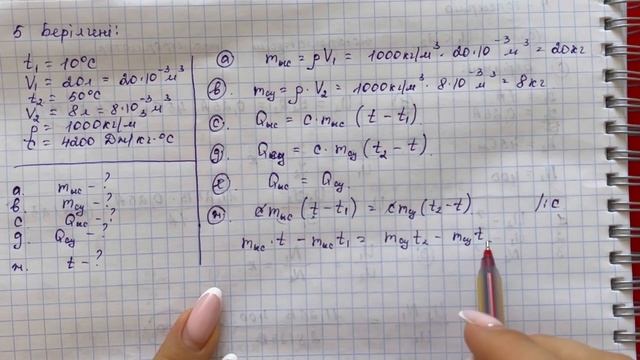 5 Берілгені:
t₁ = 10°C
V₁ = 20л = 20·10⁻³ м³
t₂ = 50°C
V₂ = 8л = 8·10⁻³ м³
ρ = 1000кг/м³
c = 4200 Дж/кг·°C
a. mыс - ?
b. mсу - ?
c. Qыс - ?
g. Qсу - ?
н. t - ?
a) mыс = ρV₁ = 1000кг/м³ · 20·10⁻³ м³ = 20кг
b. mсу = ρ·V₂ = 1000кг/м³ · 8·10⁻³ м³ = 8кг
c. Qыс = c·mыс (t - t₁).
g. Qсу = c·mсу (t₂ - t).
e. Qыс = Qсу.
н. cmыс (t - t₁) = cmсу (t₂ - t) /:c
mыс·t - mысt₁ = mсуt₂ - mсуt